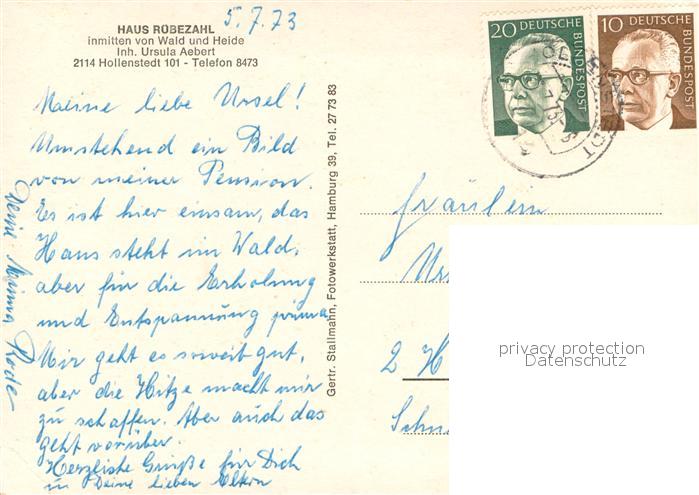 HAUS RÜBEZAHL
inmitten von Wald und Heide
Inh. Ursula Aebert
2114 Hollenstedt 101 - Telefon 8473
5.7.73
Meine liebe Ursel!
Umstehend ein Bild
von meiner Pension.
Es ist hier einsam, das
Haus steht im Wald,
aber für die Erholung
und Entspannung prima
Mir geht es soweit gut,
aber die Hitze macht mir
zu schaffen. Aber auch das
geht vorüber.
Herzliche Grüße für Dich
u. Deine lieben Eltern
Deine Minna Rode
Gertr. Stallmann, Fotowerkstatt, Hamburg 39, Tel. 27 73 83
20 DEUTSCHE BUNDESPOST
10 DEUTSCHE BUNDESPOST
Fräulein
2 H
privacy protection
Datenschutz